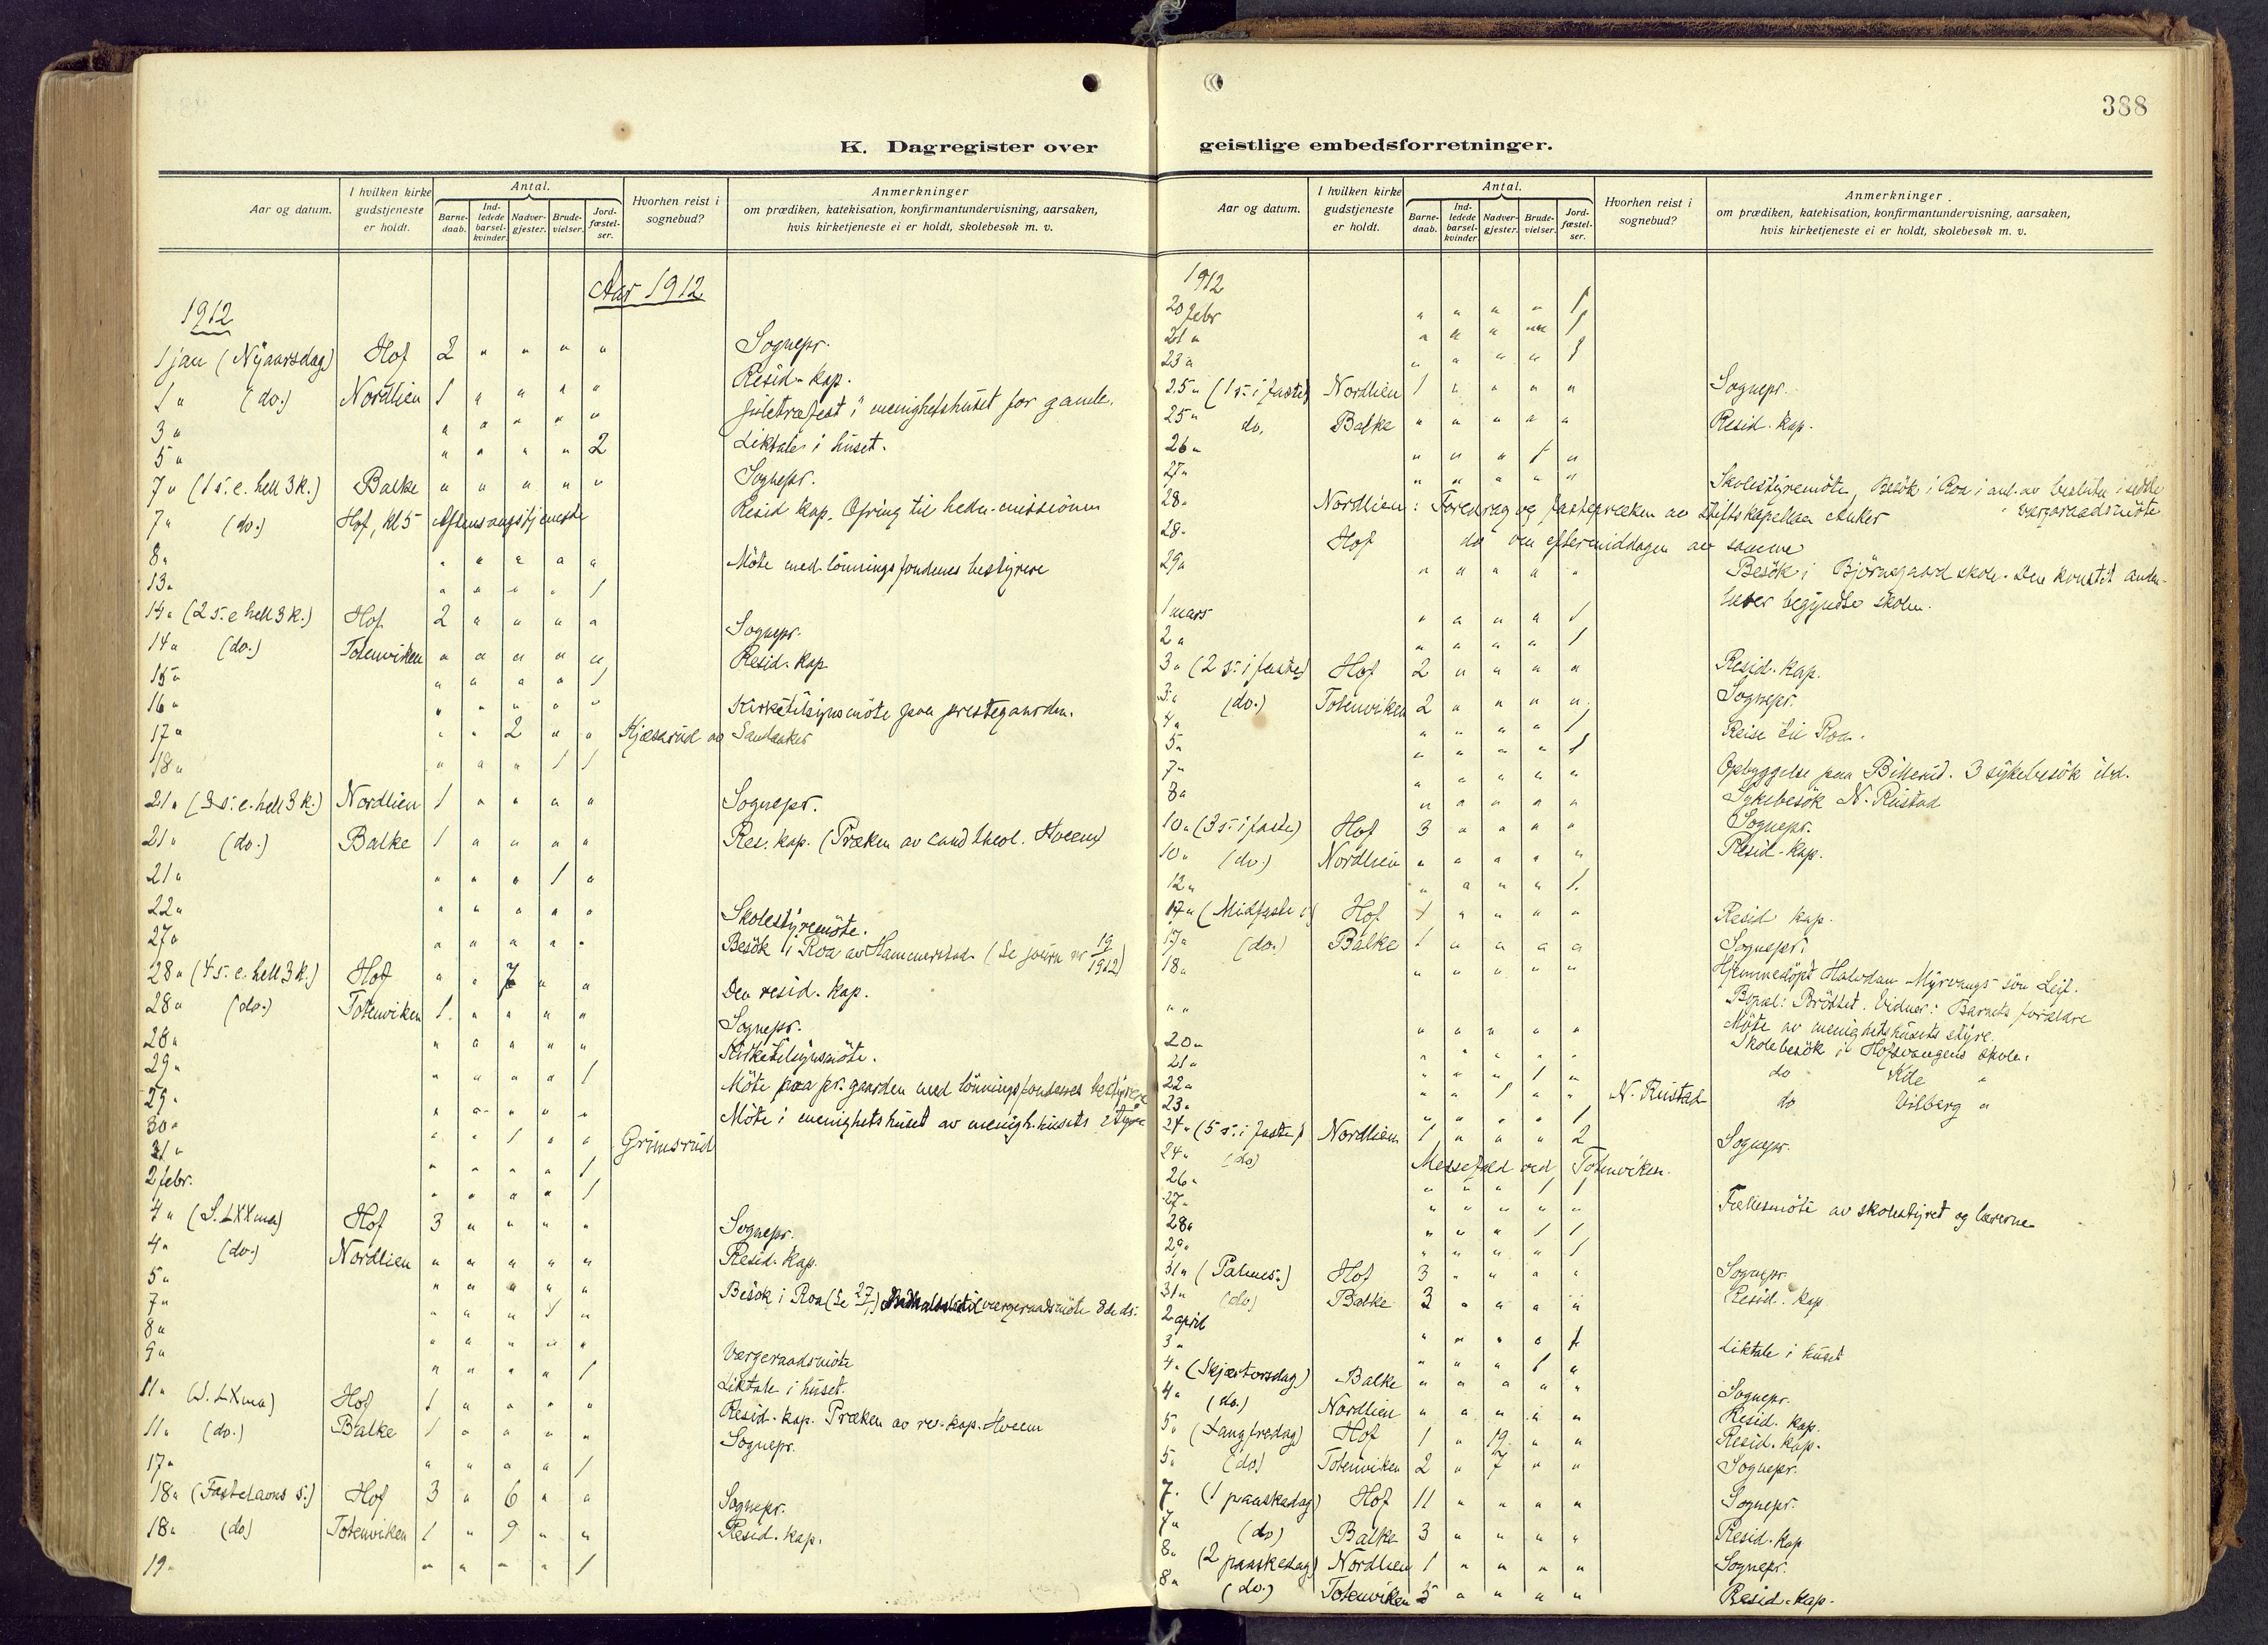 388
K. Dagregister over geistlige embedsforretninger.
Aar og datum. I hvilken kirke gudstjeneste er holdt. Antal. Barne-daab. Ind-ledede barsel-kvinder. Nadver-gjester. Brude-vielser. Jord-fæstel-ser. Hvorhen reist i sognebud? Anmerkninger om prædiken, katekisation, konfirmantundervisning, aarsaken, hvis kirketjeneste ei er holdt, skolebesøk m. v.
Aar 1912
1912
1 jan (Nyaarsdag) Hof 2 " " " " Sognepr.
1 " (do.) Nordlien 1 " " " " Resid. kap.
3 " " " " " " Juletræfest i menighetshuset for gamle.
5 " " " " " 2 Liktale i huset.
7 " (1 s. e. hell 3 k.) Balke " " " " " Sognepr.
7 " (do.) Hof, kl 5 Aftensangstjeneste Resid kap. Ofring til hedn.missionen
8 " " " " " " Möte med lönningsfondenes bestyrere
13 " " " " " 1
14 " (2 s. e hell 3 k.) Hof 2 " " " " Sognepr.
14 " (do.) Totenviken " " " " " Resid. kap
15 " " " " " 1
16 " " " " " " Kirketilsynsmöte paa prestegaarden.
17 " " " 2 " " Kjæserud av Sandaker
18 " " " " 1 1
21 " (3 s. e. hell 3 k.) Nordlien 1 " " " " Sognepr.
21 " (do.) Balke 1 " " " " Res. kap. (Præken av cand theol. Hveem)
21 " " " " 1 "
22 " " " " " " Skolestyremöte.
27 " " " " " " Besök i Roa av Hammerstad (Se journ nr 19/1912)
28 " (4 s. e. hell 3 k.) Hof " " 7 " " Den resid. kap.
28 " (do.) Totenviken 1 " " " " Sognepr.
28 " " " " " " Kirketilsynsmöte.
29 " " " " " 1
29 " " " " " " Möte paa pr. gaarden med lönningsfondenes bestyrere
30 " " " 1 " " Grimsrud Möte i menighetshuset av menigh.husets styre
31 " " " " " 1
2 febr. " " " " 1
4 " (S. LXXma) Hof 3 " " " " Sognepr.
4 " (do.) Nordlien " " " " " Resid. kap.
5 " " " " " " Besök i Roa (Se 27/1) værgeraadsmöte 8de ds.
7 " " " " 1 "
8 " " " " " " Værgeraadsmöte
9 " " " " " 1 Liktale i huset.
11 " (S. LXma) Hof 1 " " " " Resid. kap. Præken av res. kap. Hveem
11 " (do.) Balke 1 " " " " Sognepr.
17 " " " " " 1
18 " (Fastelavns s.) Hof 3 " 6 " " Sognepr.
18 " (do) Totenviken 1 " 9 " " Resid. kap.
19 " " " " " 1
Aar og datum. I hvilken kirke gudstjeneste er holdt. Antal. Barne-daab. Ind-ledede barsel-kvinder. Nadver-gjester. Brude-vielser. Jord-fæstel-ser. Hvorhen reist i sognebud? Anmerkninger om prædiken, katekisation, konfirmantundervisning, aarsaken, hvis kirketjeneste ei er holdt, skolebesøk m. v.
1912
20 febr " " " " 1
21 " " " " " 1
23 " " " " " 1
25 " (1 s. i faste) Nordlien 1 " " " " Sognepr.
25 " do. Balke " " " " " Resid. kap.
26 " " " " 1 "
27 " " " " " " Skolestyremöte, Besök i Roa i anl. av beslutn i sidste værgeraadsmöte
28 " Nordlien: Foredrag og fastepræken av stiftskapellan Anker
28 " Hof do om eftermiddagen av samme
29 " " " " " " Besök i Björnsgaard skole. Den konst. 
begyndte skolen.
1 mars " " " " 1
2 " " " " " 1
3 " (2 s. i faste) Hof 2 " " " " Resid. kap.
3 " (do.) Totenviken 2 " " " " Sognepr.
4 " " " " " 1 Reise til Roa.
5 " " " " " 1
7 " " " " " " Opbyggelse paa Billerud. 3 sykebesök
8 " " " " " " Sykebesök N. Rustad
10 " (3 s. i faste) Hof 3 " " " " Sognepr.
10 " (do.) Nordlien " " " " " Resid. kap.
12 " " " " " 1
17 " (Midfaste s) Hof 1 " " " " Resid kap.
17 " (do.) Balke 1 " " " " Sognepr.
18 " " " " " " Hjemmedöpt Halvdan Myrvangs sön Leif.
" " Bopæl: Brödlet. Vidner: Barnets forældre
20 " " " " " " Möte av menighetshusets styre.
21 " " " " " " Skolebesök i Hofsvangens skole.
22 " " " " 1 " do Kile "
23 " " " 1 " " N. Rustad do Vilberg "
" " " " 1
24 " (5 s. i faste) Nordlien 1 " " " 2 Sognepr.
24 " (do) Messefald ved Totenviken.
26 " " " " 1 1
27 " " " " " " Fællesmöte av skolestyret og lærerne
28 " " " " 1 1
29 " " " " " 1
31 " (Palmes.) Hof 3 " " " " Sognepr
31 " (do) Balke 3 " " " " Resid. kap
2 april " " " " 1 Liktale i huset
3 " " " " 1 "
4 " (Skjærtorsdag) Balke " " " " " Sognepr.
4 " (do.) Nordlien " " " " " Resid. kap.
5 " (Langfredag) Hof 1 " 19 " " Resid. kap.
5 " (do.) Totenviken 2 " 7 " " Sognepr.
7 " (1 paaskedag) Hof 11 " " " " Sognepr.
7 " (do) Balke 3 " " " " Resid. kap
8 " (2 paaskedag) Nordlien 1 " " " " Sognepr.
8 " (do.) Totenviken 5 " " " " Resid. kap.